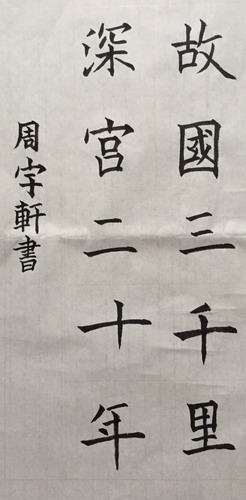 故國三千里
深宫二十年
周字軒書